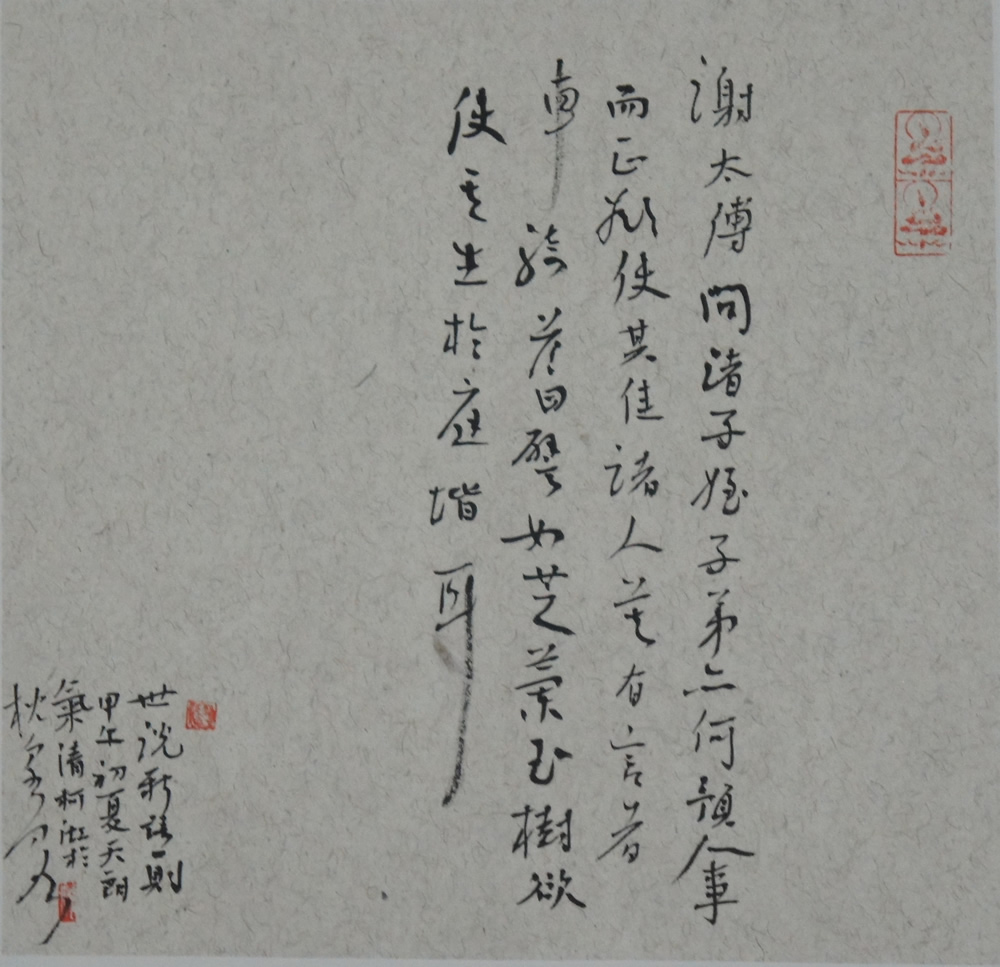 謝太傅問諸子姪子弟亦何預人事
而正欲使其佳諸人莫有言者
車騎答曰譬如芝蘭玉樹欲
使其生於庭堦耳
世說新語一則
甲午初夏天朗
氣清柯澍於
秋